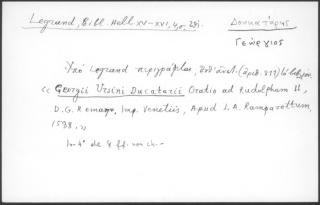 Legrand, Bibl. Hell. XV-XVI, 4,σ. 291.
Δουκατάρης
Γεώργιος
Ὑπὸ Legrand περιγράφεται,
« Georgii Ursini Ducatarii Oratio ad Rudolphum II,
D.G. Romano, Imp. Venetiis, Apud I. A. Rampazettum,
1598. »
In-4° de 8 ff. non ch.-